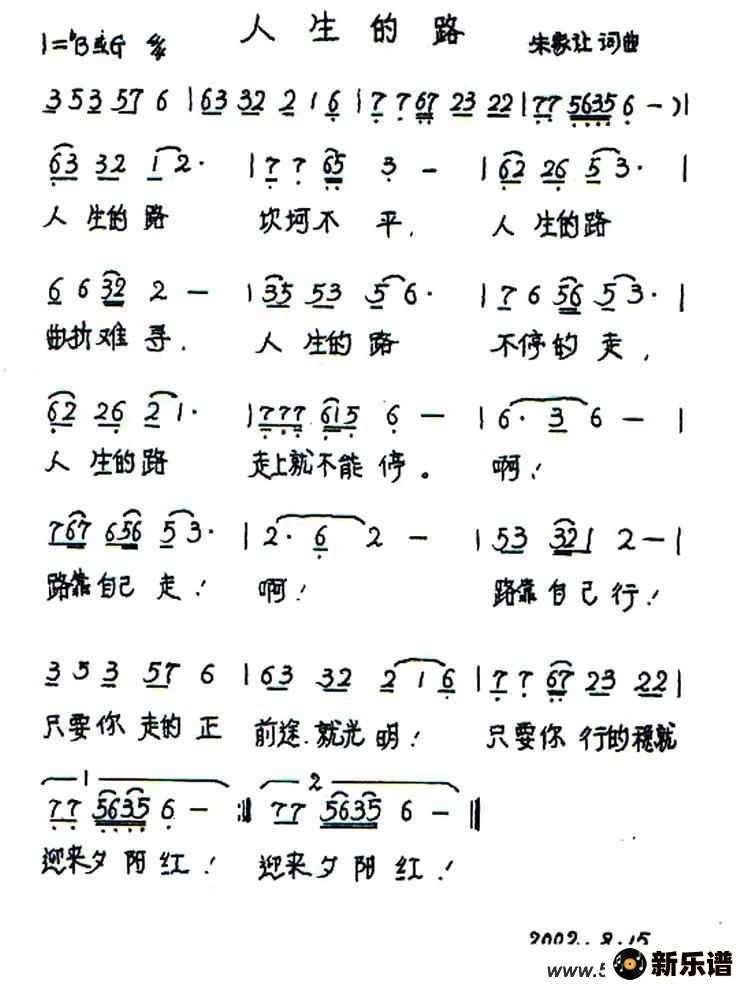 人生的路
1=♭B或G 朱家让 词曲
3 5 3 5 7 6 | 6 3 3 2 2 1 6 | 7 7 6 7 2 3 2 2 | 7 7 5 6 3 5 6 - ) |
6 3 3 2 1 2 · | 7 7 6 5 3 - | 6 2 2 6 5 3 · |
人生的路 坎坷不平, 人生的路
6 6 3 2 2 - | 3 5 5 3 5 6 · | 7 6 5 6 5 3 · |
曲折难寻. 人生的路 不停的走,
6 2 2 6 2 1 · | 7 7 7 6 1 5 6 - | 6 · 3 6 - |
人生的路 走上就不能停。 啊!
7 6 7 6 5 6 5 3 · | 2 · 6 2 - | 5 3 3 2 1 2 - |
路靠自己走! 啊! 路靠自己行!
3 5 3 5 7 6 | 6 3 3 2 2 1 6 | 7 7 6 7 2 3 2 2 |
只要你走的正 前途.就光明! 只要你行的稳就
1 2
7 7 5 6 3 5 6 - :| 7 7 5 6 3 5 6 - ||
迎来夕阳红! 迎来夕阳红!
2002. 8.15
www.5 新乐谱